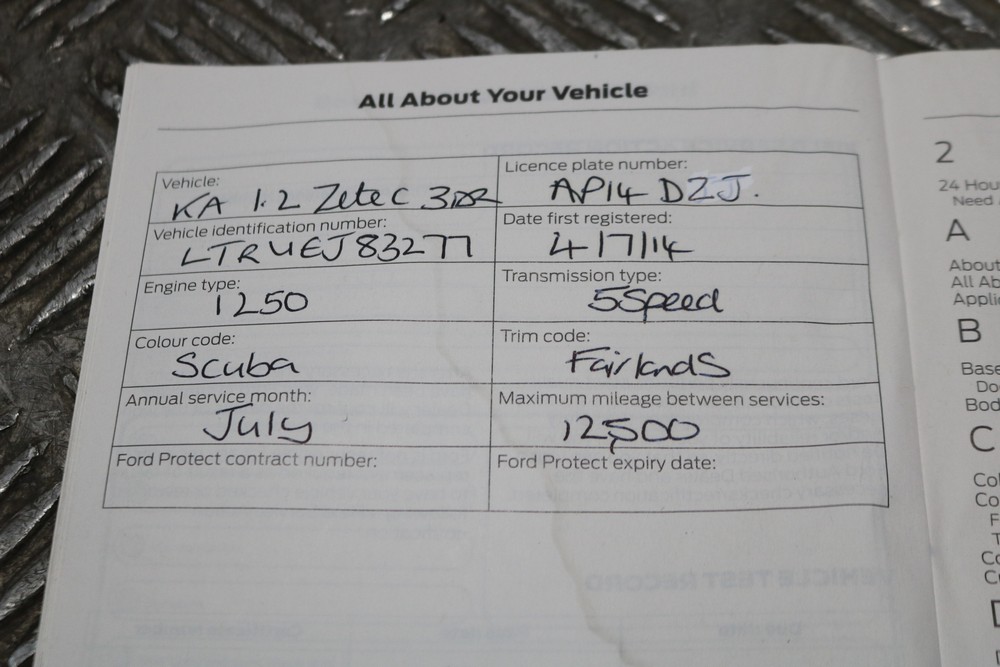 All About Your Vehicle
Vehicle:
KA 1.2 Zetec 3DR
Licence plate number:
AP14 DZJ.
Vehicle identification number:
LTRUEJ83277
Date first registered:
4/7/14
Engine type:
1250
Transmission type:
5Speed
Colour code:
Scuba
Trim code:
Fairlands
Annual service month:
July
Maximum mileage between services:
12500
Ford Protect contract number:
Ford Protect expiry date:
VEHICLE TEST RECORD
2
24 Hou
Need
A
About
All Ab
Applic
B
Base
Do
Bod
C
Col
Co
F
T
Co
C